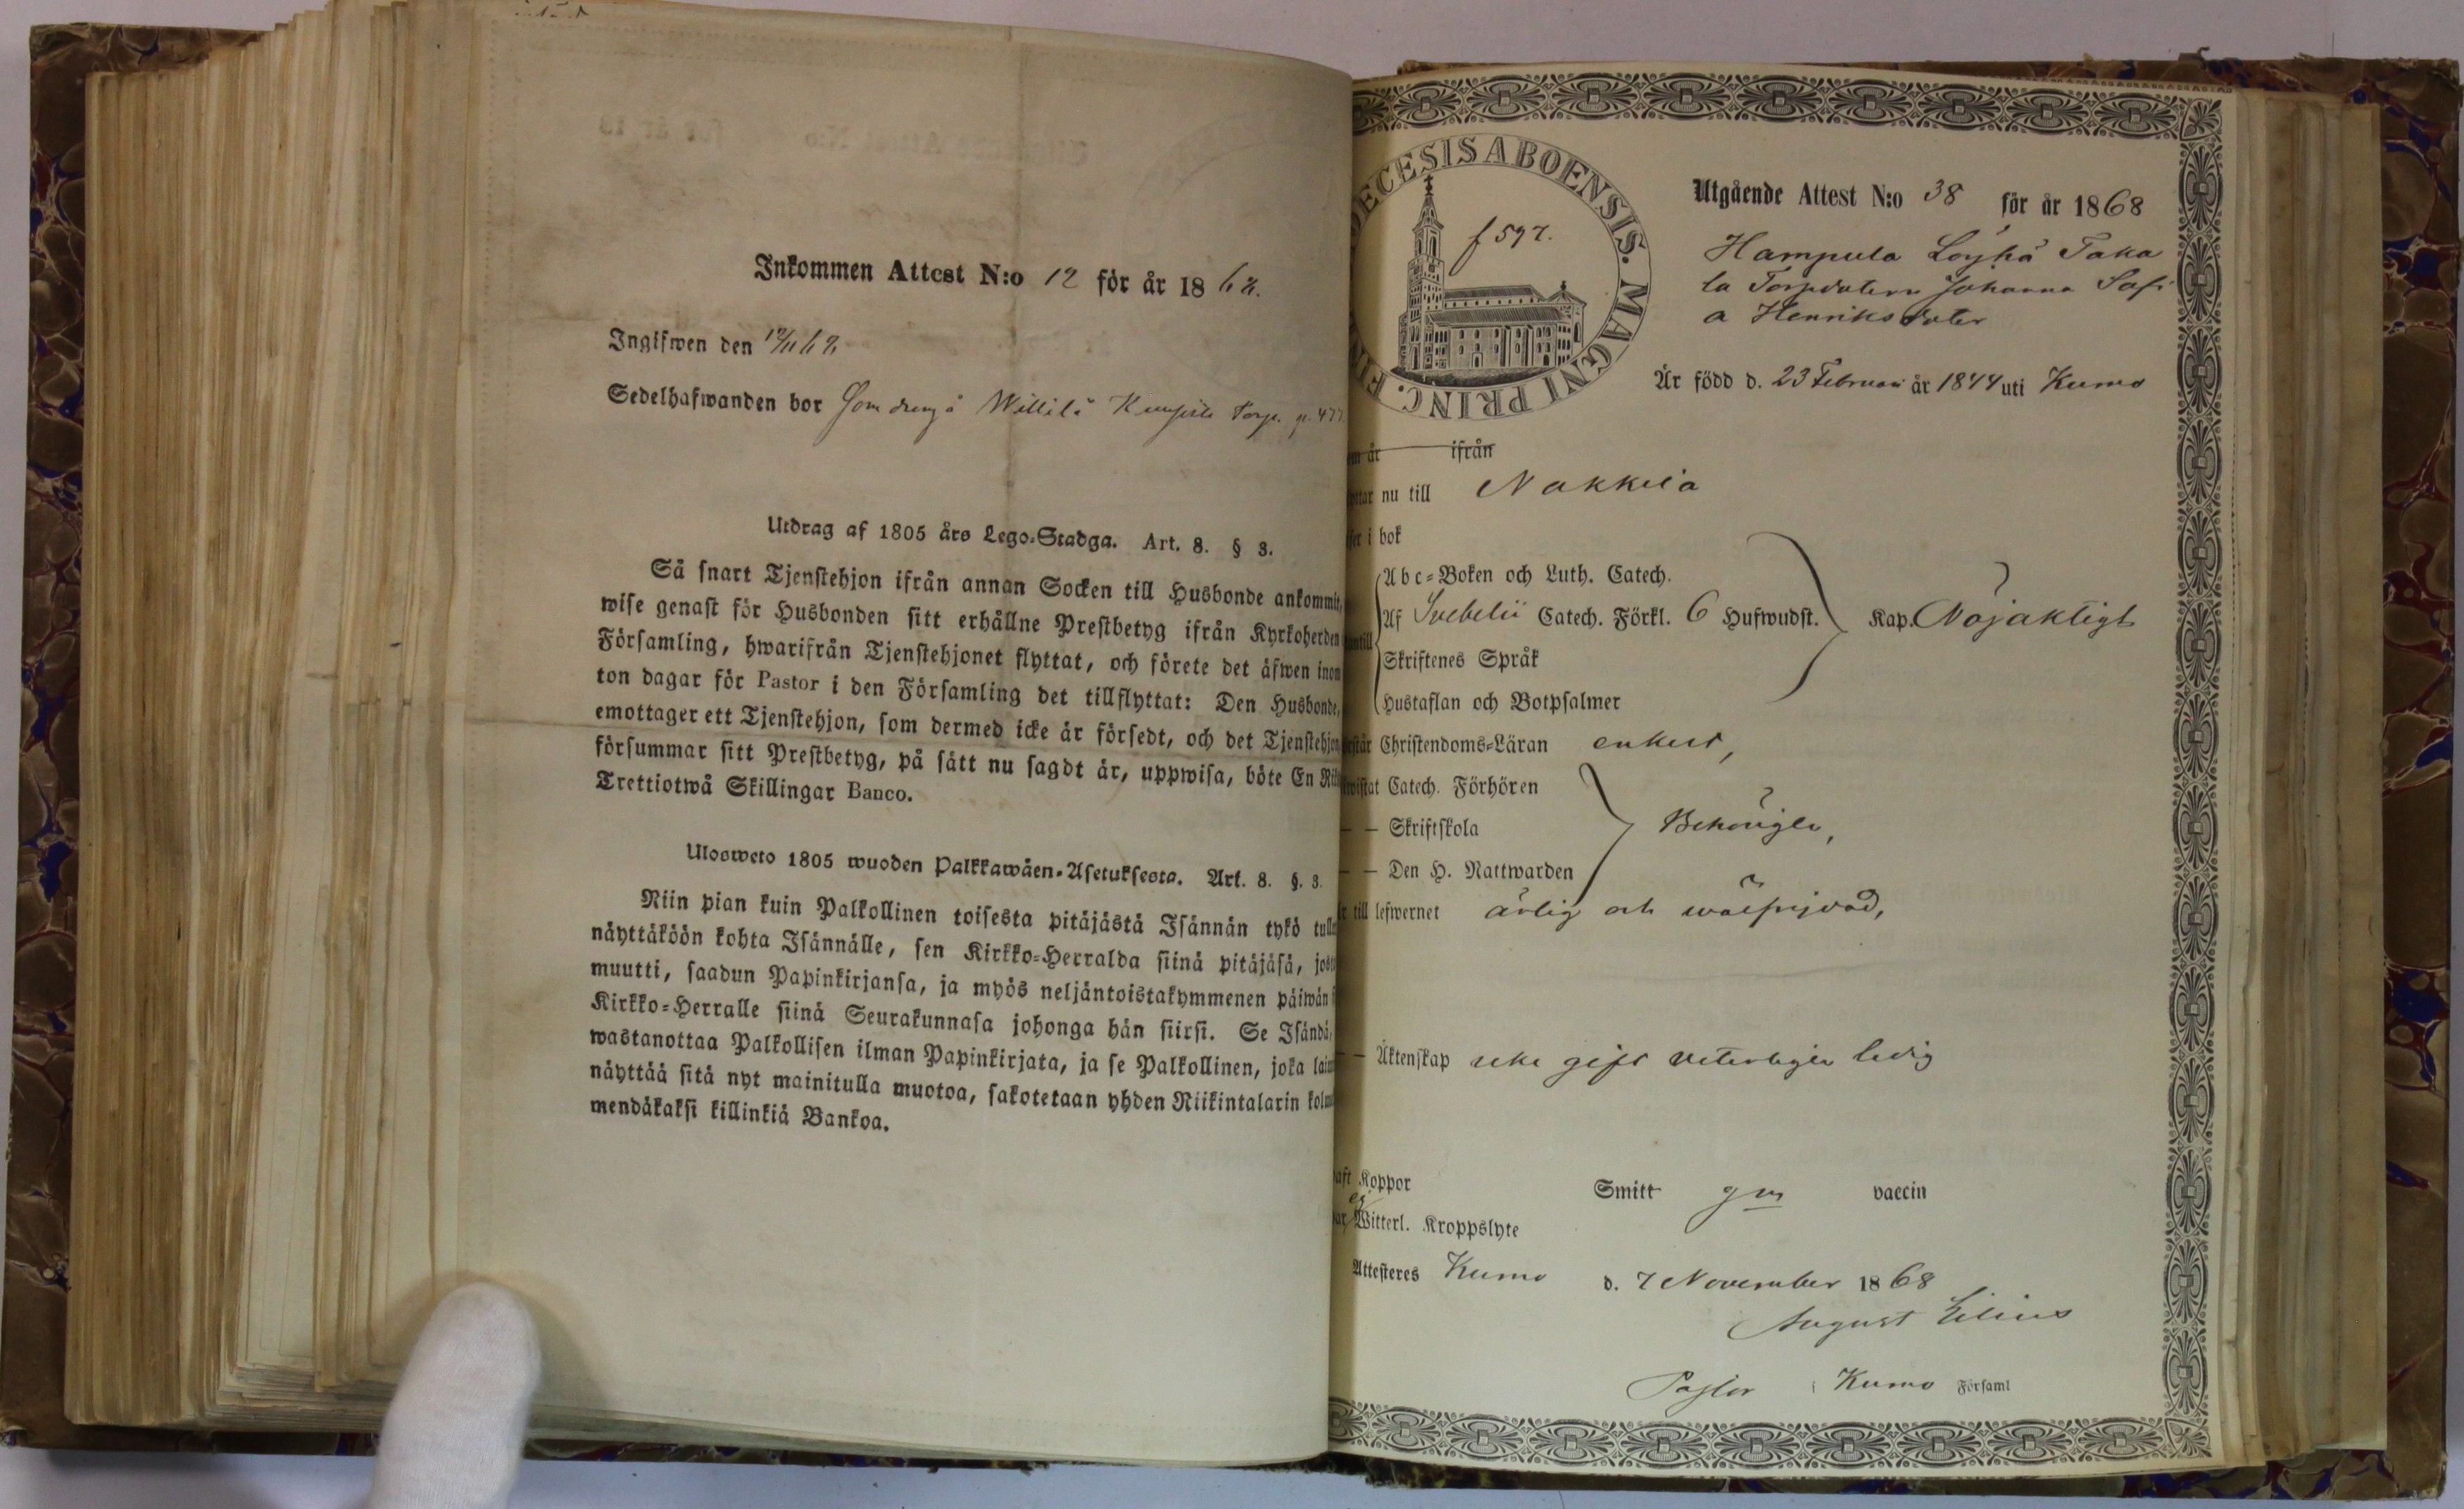 Inkommen Attest N:o 12 för år 1868.
Ingifwen den 17/11 68
Sedelhafwanden bor Som dreng å Willilä Torp. p. 477
Utdrag af 1805 års Lego-Stadga. Art. 8. § 3.
Så snart Tjenstehjon ifrån annan Socken till Husbonde ankommit,
wise genast för Husbonden sitt erhållne Prestbetyg ifrån Kyrkoherden
Församling, hwarifrån Tjenstehjonet flyttat, och förete det äfwen inom
ton dagar för Pastor i den Församling det tillflyttat: Den Husbonde,
emottager ett Tjenstehjon, som dermed icke är försedt, och det Tjenstehjon
försummar sitt Prestbetyg, på sätt nu sagdt är, uppwisa, böte En Rik
Trettiotwå Skillingar Banco.
Ulosweto 1805 wuoden Palkkawäen-Asetuksesta. Art. 8. §. 3.
Niin pian kuin Palkollinen toisesta pitäjästä Isännän tykö tull
näyttäköön kohta Isännälle, sen Kirkko-Herralda siinä pitäjäsä, josta
muutti, saadun Papinkirjansa, ja myös neljäntoistakymmenen päiwän s
Kirkko-Herralle siinä Seurakunnasa johonga hän siirsi. Se Isändä,
wastanottaa Palkollisen ilman Papinkirjata, ja se Palkollinen, joka laim
näyttää sitä nyt mainitulla muotoa, sakotetaan yhden Riikintalarin kolm
mendäkaksi killinkiä Bankoa.
DECESIS ABOENSIS. MAGNI PRINC. FIN
f 597.
Utgående Attest N:o 38 för år 1868
Hampula Löyhä Taka
la Torpdotern Johanna Sofi
a Henriksdoter
Är född d. 23 Februari år 1844 uti Kumo
om år ifrån
yttar nu till Nakkila
ser i bok
Abc-Boken och Luth. Catech.
Af Svebelii Catech. Förkl. 6 Hufwudst. Kap. Nöjaktigt
Skriftenes Språk
Hustaflan och Botpsalmer
rstår Christendoms-Läran enkelt,
wistat Catech. Förhören
— — Skriftskola Behörigen,
— — Den H. Nattwarden
r till lefwernet ärlig och wälfrejdad,
— — Äktenskap icke gift veterligen ledig
aft Koppor Smitt gm vaccin
ar ej Witterl. Kroppslyte
Attesteres Kumo d. 7 November 1868
August Lilius
Pastor i Kumo Församl